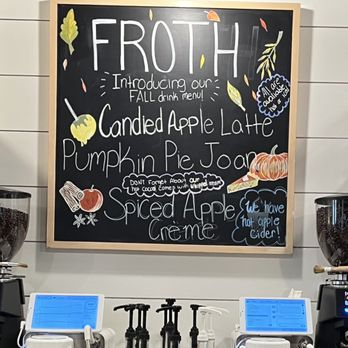 FROTH
Introducing our
FALL drink menu!
All are
available
hot or iced
Candied Apple Latte
Pumpkin Pie Joan
Don't Forget About our
hot cocoa comes with whipped cream
Spiced Apple
Crème
We have
hot apple
cider!